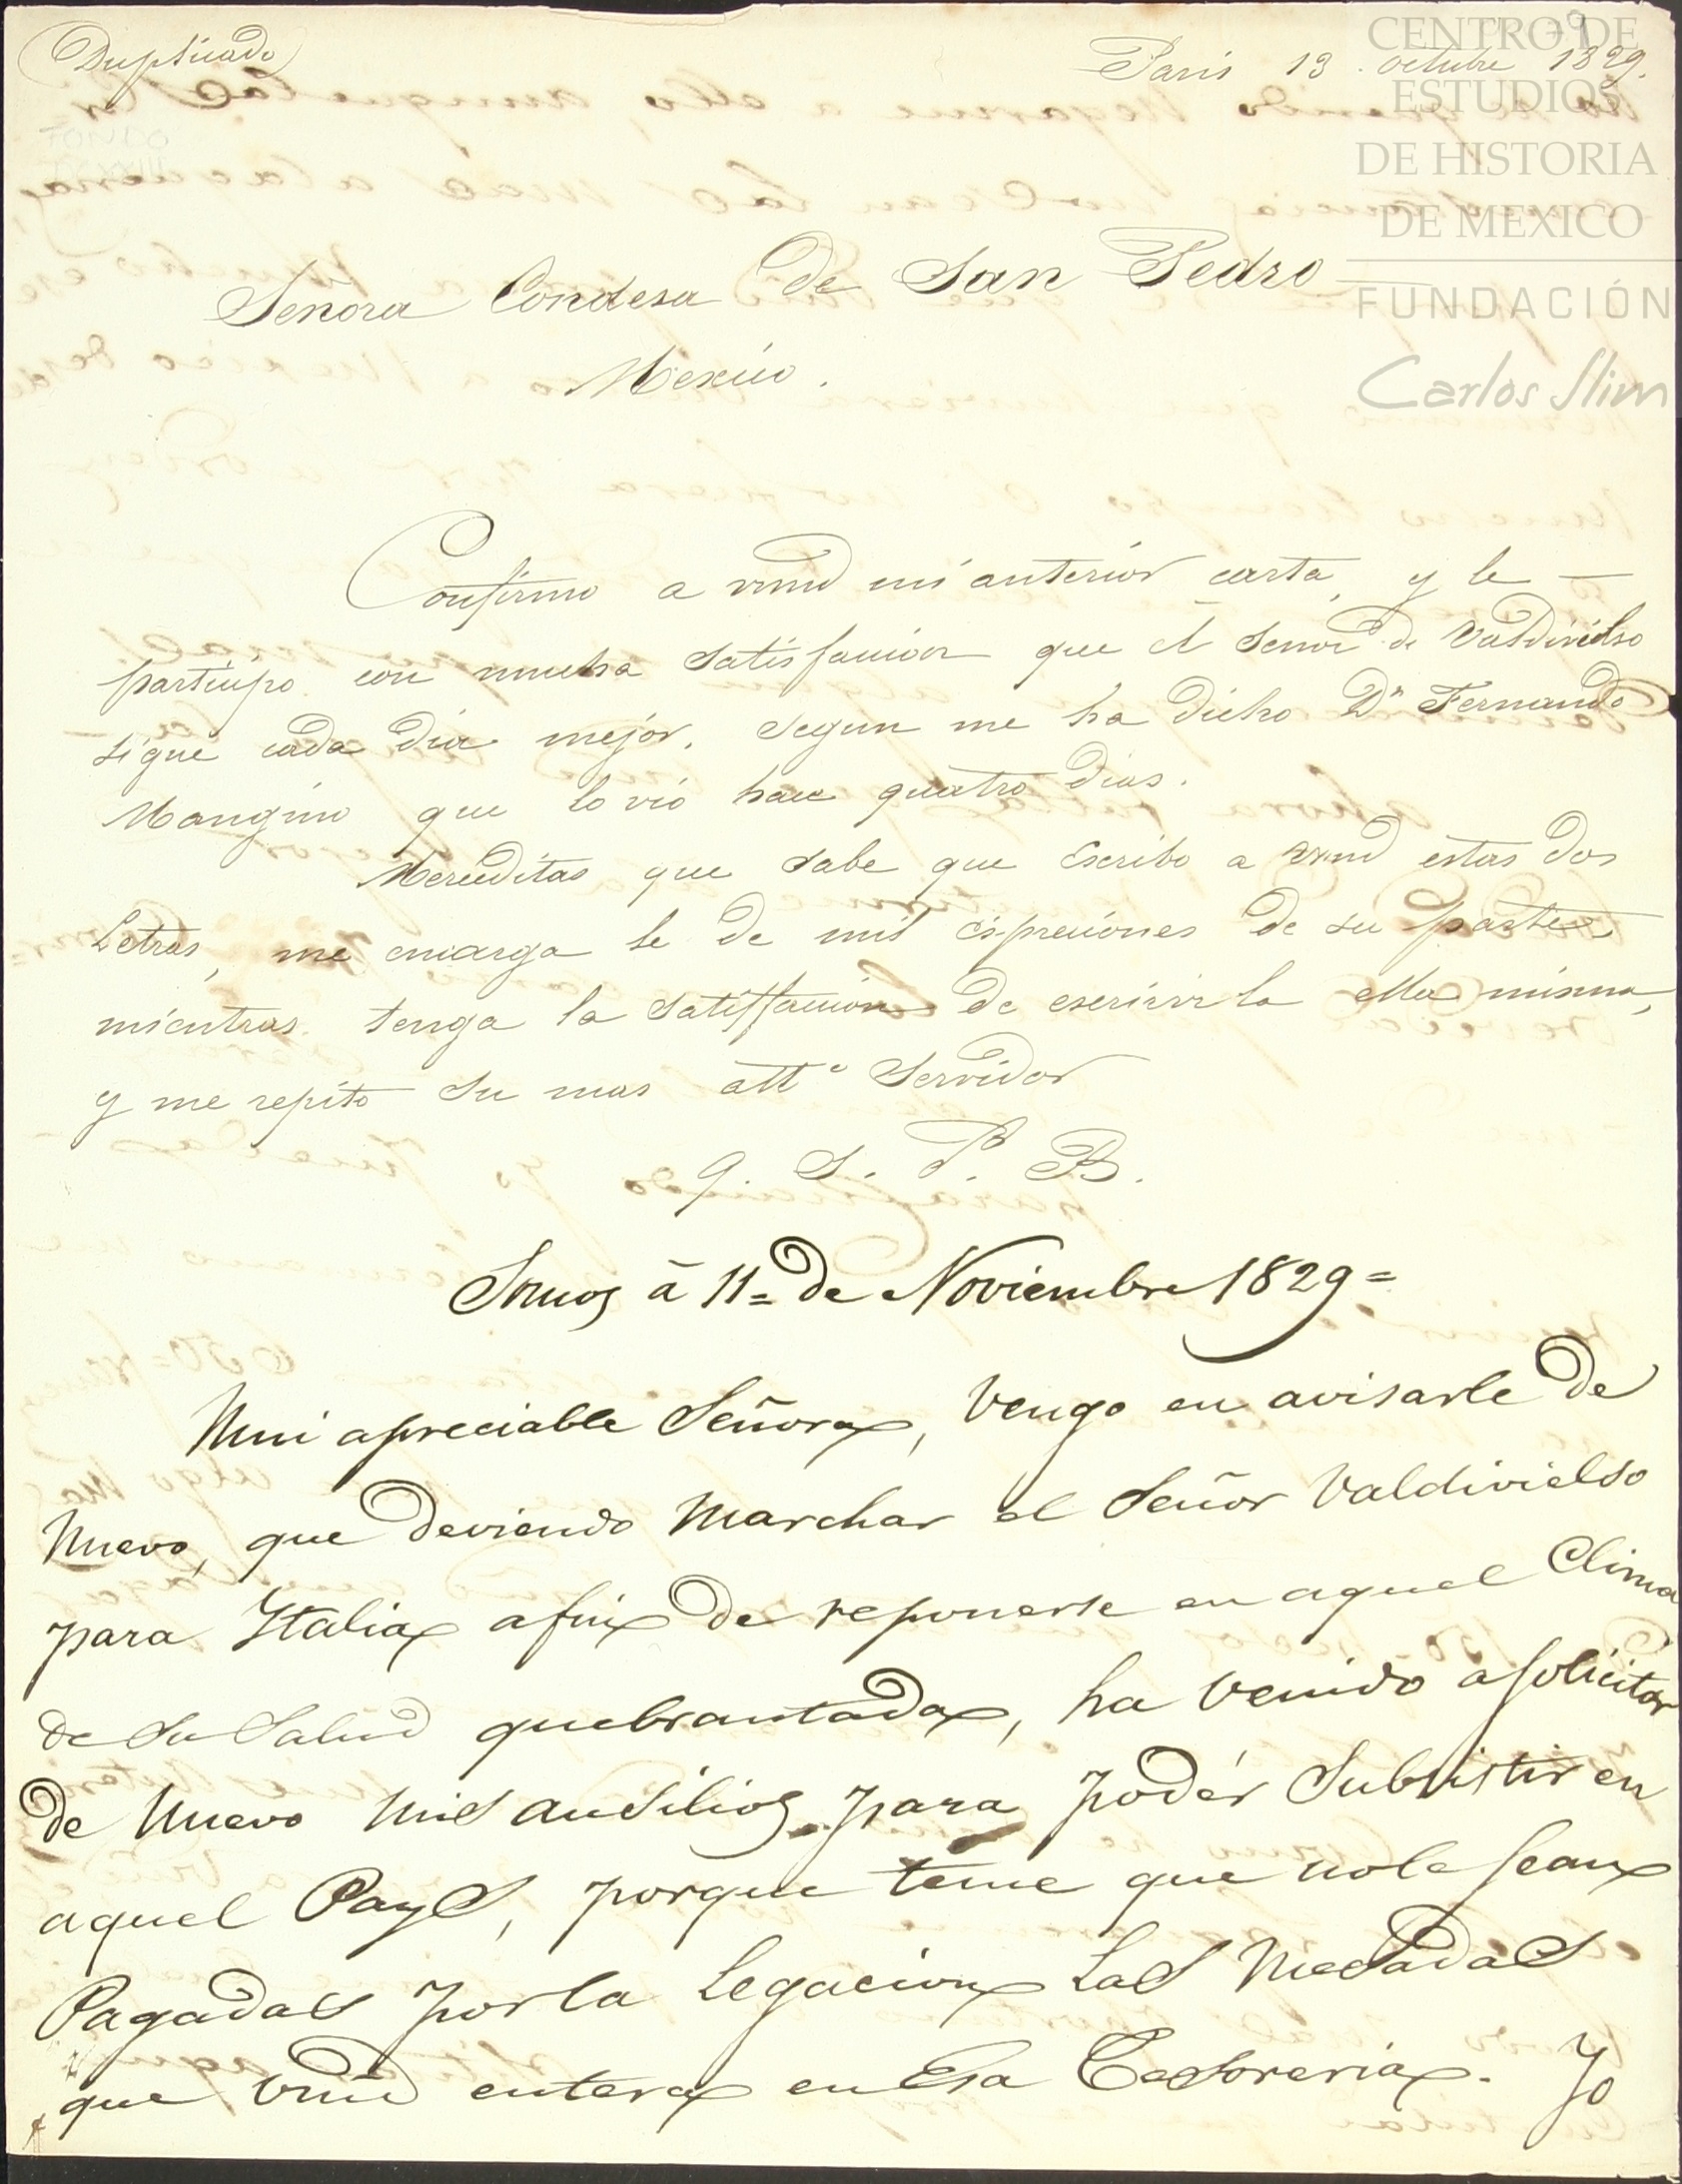 Duplicado
Paris 13 octubre 1829.
CENTRO DE
ESTUDIOS
DE HISTORIA
DE MEXICO
FUNDACIÓN
Carlos Slim
FONDO
Señora Condesa de San Pedro
Mexico.
Confirmo a vmd mi anterior carta, y le
participo con mucha satisfaccion que el Señor de Valdivielso
sigue cada dia mejor, segun me ha dicho Dn Fernando
Mangino que lo vió hace quatro dias.
Merceditas que sabe que escribo a vmd estas dos
Letras, me encarga le de mil espreciones de su parte,
mientras tenga la satisfaccion de escrivirla ella misma,
y me repito su mas atto Servidor
q. S. P. B.
Somos à 11= de Noviembre 1829=
Mui apreciable Señora, vengo en avisarle de
Nuevo, que deviendo Marchar el Señor Valdivielso
para Italia a fin de reponerse en aquel Clima
de Su Salud quebrantada, ha venido a solicitar
de Nuevo mis ausilios para podér Subsistir en
aquel Pays, porque teme que no le sean
Pagadas por la Legacion Las Mesadas
que vmd entera en Esa Tesoreria. Yo